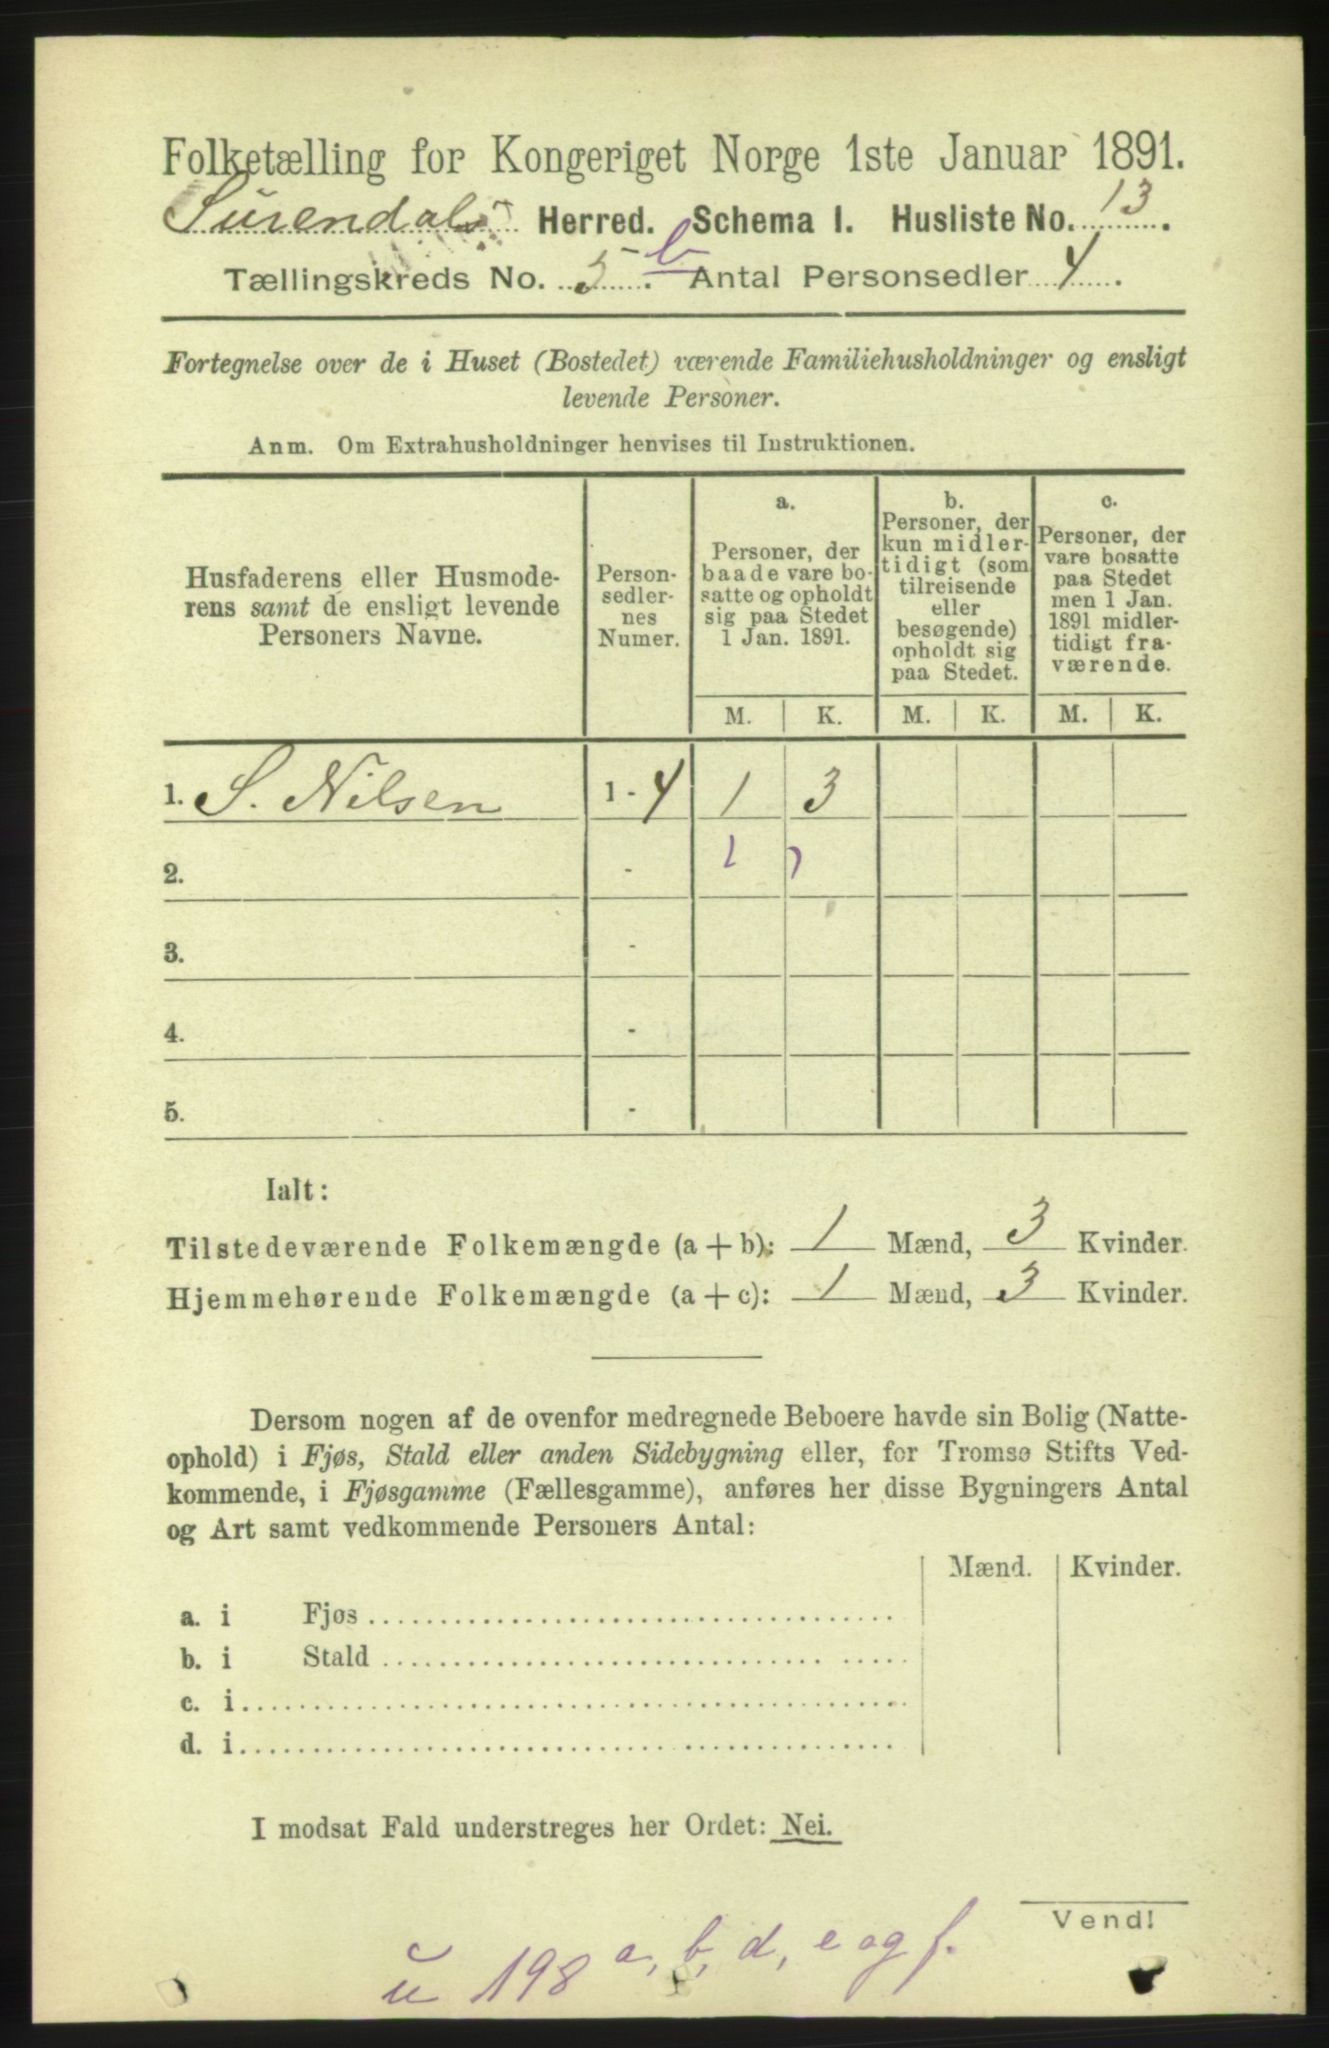 Folketælling for Kongeriget Norge 1ste Januar 1891.
Surendals Herred. Schema I. Husliste No. 13.
Tællingskreds No. 5. b Antal Personsedler 4.
Fortegnelse over de i Huset (Bostedet) værende Familiehusholdninger og ensligt
levende Personer.
Anm. Om Extrahusholdninger henvises til Instruktionen.
Husfaderens eller Husmode-
rens samt de ensligt levende
Personers Navne.
Person-
sedler-
nes
Numer.
a.
Personer, der
baade vare bo-
satte og opholdt
sig paa Stedet
1 Jan. 1891.
b.
Personer, der
kun midler-
tidigt (som
tilreisende
eller
besøgende)
opholdt sig
paa Stedet.
c.
Personer, der
vare bosatte
paa Stedet
men 1 Jan.
1891 midler-
tidigt fra-
værende.
M. K. M. K. M. K.
1. S. Nilsen 1 - 4 1 3
2. -
3. -
4. -
5. -
Ialt:
Tilstedeværende Folkemængde (a + b): 1 Mænd, 3 Kvinder.
Hjemmehørende Folkemængde (a + c): 1 Mænd, 3 Kvinder.
Dersom nogen af de ovenfor medregnede Beboere havde sin Bolig (Natte-
ophold) i Fjøs, Stald eller anden Sidebygning eller, for Tromsø Stifts Ved-
kommende, i Fjøsgamme (Fællesgamme), anføres her disse Bygningers Antal
og Art samt vedkommende Personers Antal:
Mænd. Kvinder.
a. i Fjøs
b. i Stald
c. i
d. i
I modsat Fald understreges her Ordet: Nei.
Vend!
u 198 a, b, d, e og f.